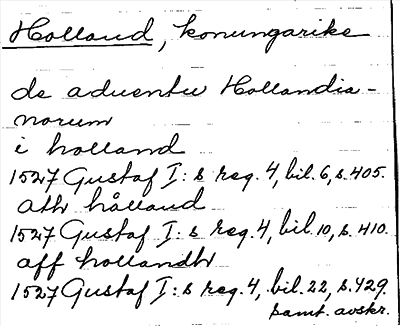 Holland, konungarike
de aduentu Hollandia-
norum
i holland
1527 Gustaf I:s reg. 4, bil. 6, s. 405.
ath hålland
1527 Gustaf I:s reg. 4, bil. 10, s. 410.
aff hollandh
1527 Gustaf I:s reg. 4, bil. 22, s. 429.
samt. avskr.